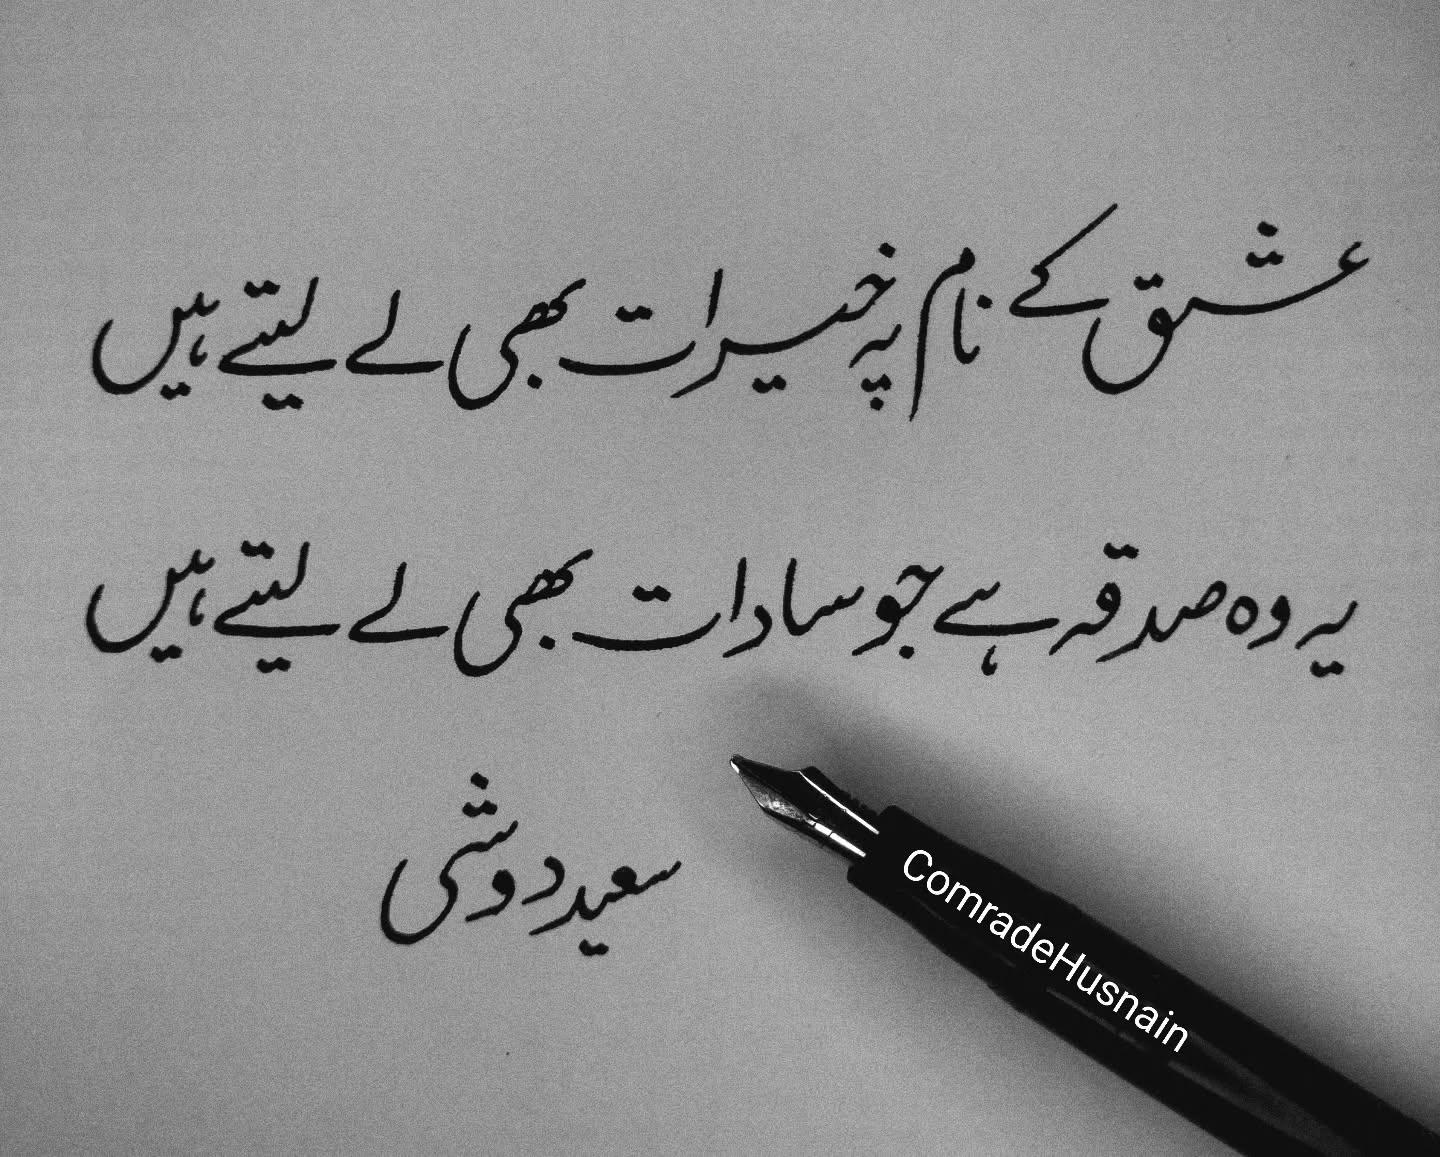 عشق کے نام پہ خیرات بھی لے لیتے ہیں
یہ وہ صدقہ ہے جو سادات بھی لے لیتے ہیں
سعید دوشی
ComradeHusnain